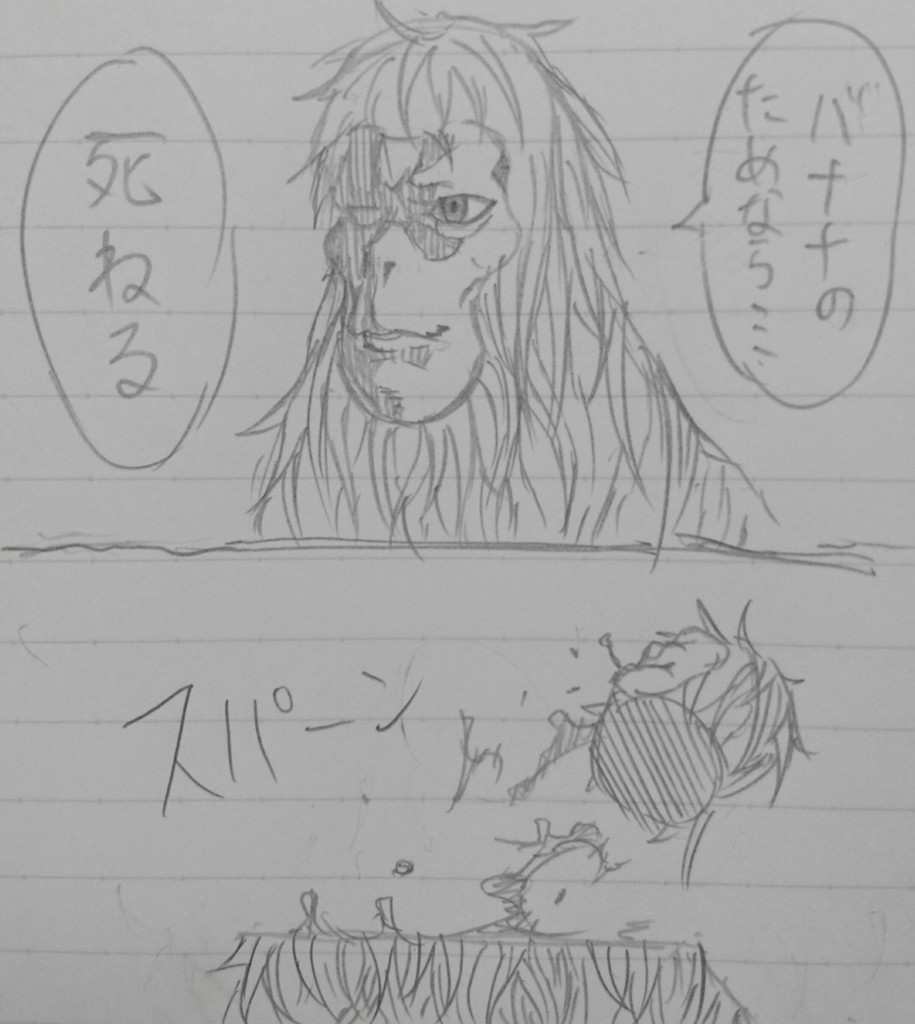 バナナの
ためなら……
死ねる
スパーン